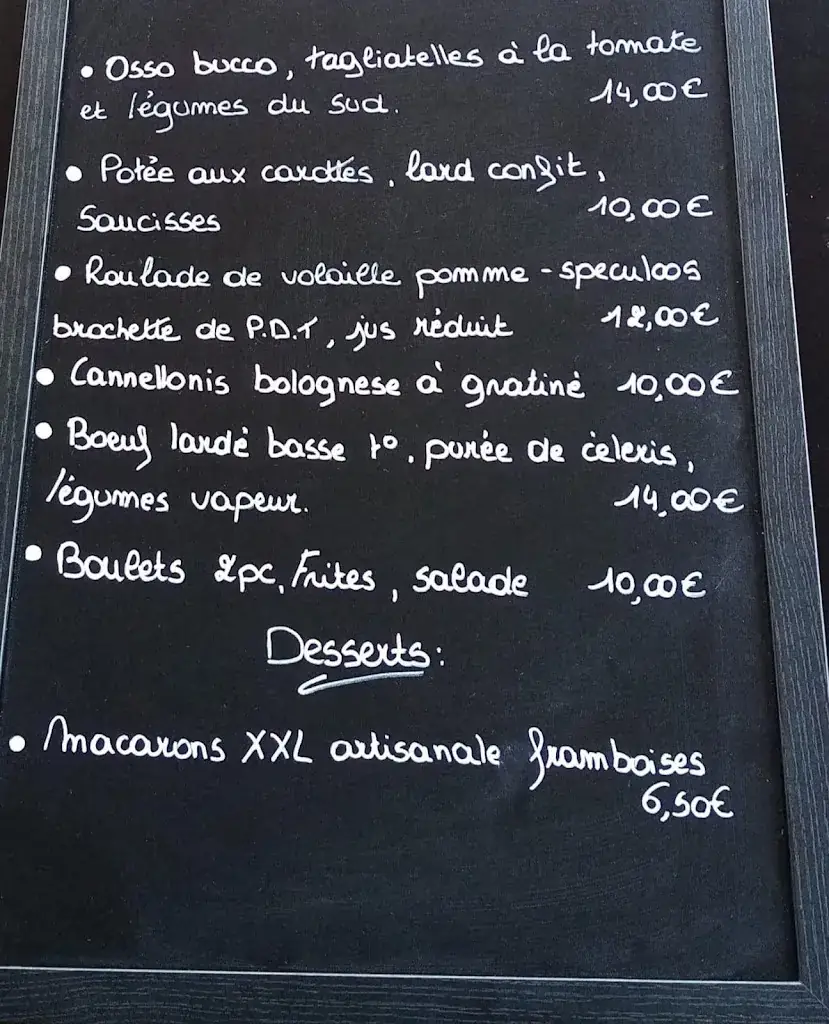 • Osso bucco, tagliatelles à la tomate
et légumes du sud. 14,00€
• Potée aux carottes, lard confit,
Saucisses 10,00€
• Roulade de volaille pomme-speculoos
brochette de P.D.T, jus réduit 12,00€
• Cannellonis bolognese à gratiné 10,00€
• Boeuf lardé basse t°, purée de céleris,
légumes vapeur. 14,00€
• Boulets 2pc, Frites, salade 10,00€
Desserts:
• Macarons XXL artisanale framboises
6,50€